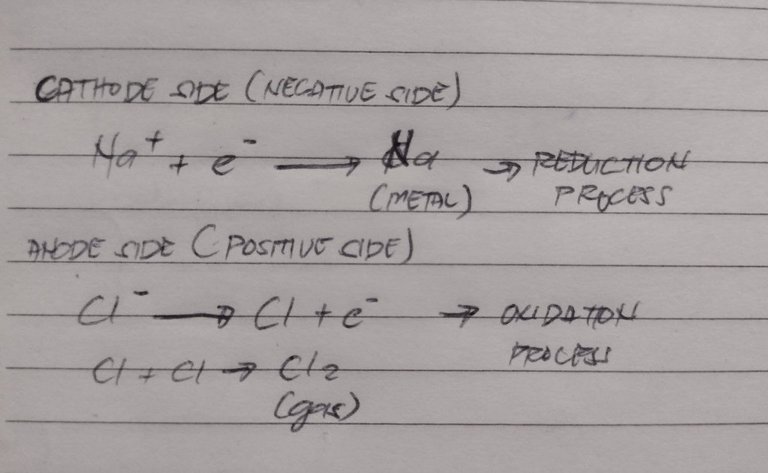 CATHODE SIDE (NEGATIVE SIDE)
Na⁺ + e⁻ → Na → REDUCTION
(METAL) PROCESS
ANODE SIDE (POSITIVE SIDE)
Cl⁻ → Cl + e⁻ → OXIDATION
PROCESS
Cl + Cl → Cl₂
(gas)